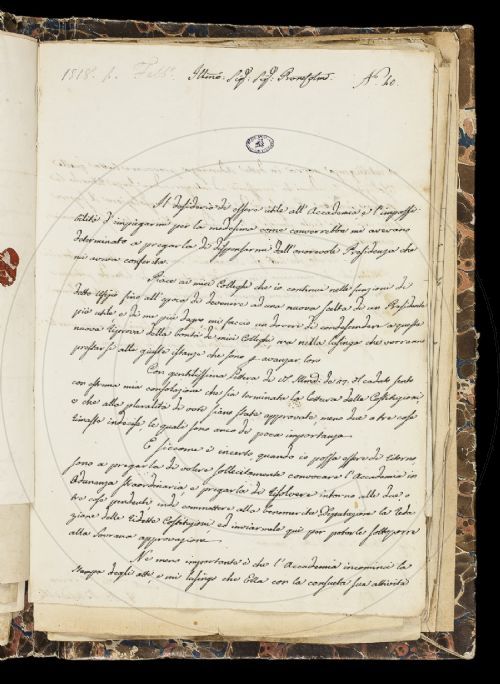 1818. 6. Febb.
Illmo. Sig. Sig. Pron Colmo.
N. 40
Il desiderio di essere utile all'Accademia e l'impossi
bilità d'impiegarmi per la medesima come converrebbe mi avevano
determinato a pregarla di dispensarmi dall'onorevole Presidenza che
mi aveva conferita.
Piace ai miei Colleghi che io continui nelle funzioni di
detto Uffizio fino all'epoca di devenire ad una nuova scelta di un Presidente
più utile e di me più degno mi faccio un dovere di condescendere a questa
nuova riprova della bontà de' miei Colleghi, ma nella lusinga che vorranno
prestarsi alle giuste istanze che sono p avanzar loro
Con gentilissima lettera de' di 27. Il caduto sento
con estrema mia consolazione che sia terminata la lettura delle Costituzioni
e che alla pluralità di voti siano state approvate, meno due o tre cose
rimaste indecise le quali sono anco di poca importanza.
E siccome è incerto quando io possa essere di ritorno
sono a pregarla di volere sollecitamente convocare l'Accademia in
Adunanza straordinaria, e pregarla di risolvere intorno alle due o
tre cose pendenti indi commettere alla benemerita Deputazione la reda
zione delle ridette Costituzioni ed inviarmele qui per poterle sottoporre
alla Sovrana approvazione.
Ne meno importante è che l'Accademia incominci la
stampa degli atti e mi lusingo che Ella con la consueta sua attività